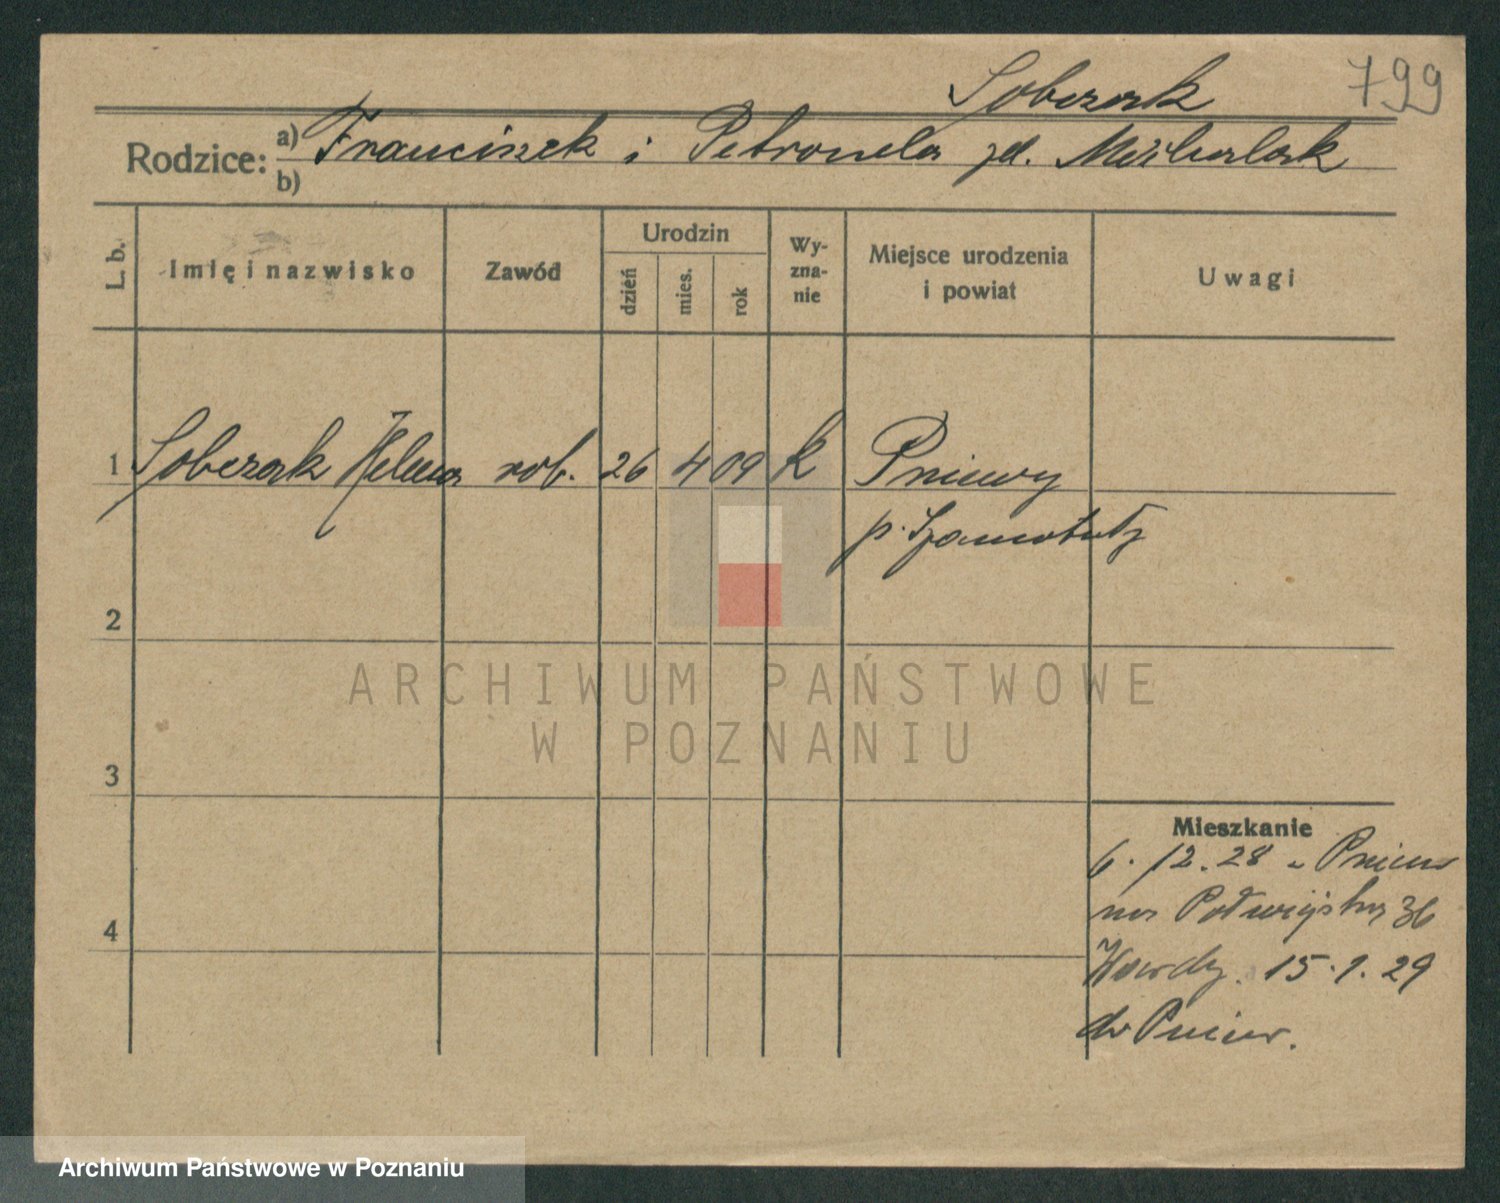 Sobczak 799
Rodzice: a) Franciszek i Petronela zd. Michalak
b)
L. b. Imię i nazwisko Zawód Urodzin dzień mies. rok Wy-zna-nie Miejsce urodzenia i powiat Uwagi
1 Sobczak Helena rob. 26 4 09 k Pniewy
p. Szamotuły
2
ARCHIWUM PAŃSTWOWE
W POZNANIU
3
Mieszkanie
6. 12. 28 z Pniew
na
36
4
15. 1. 29
do Pniew.
Archiwum Państwowe w Poznaniu